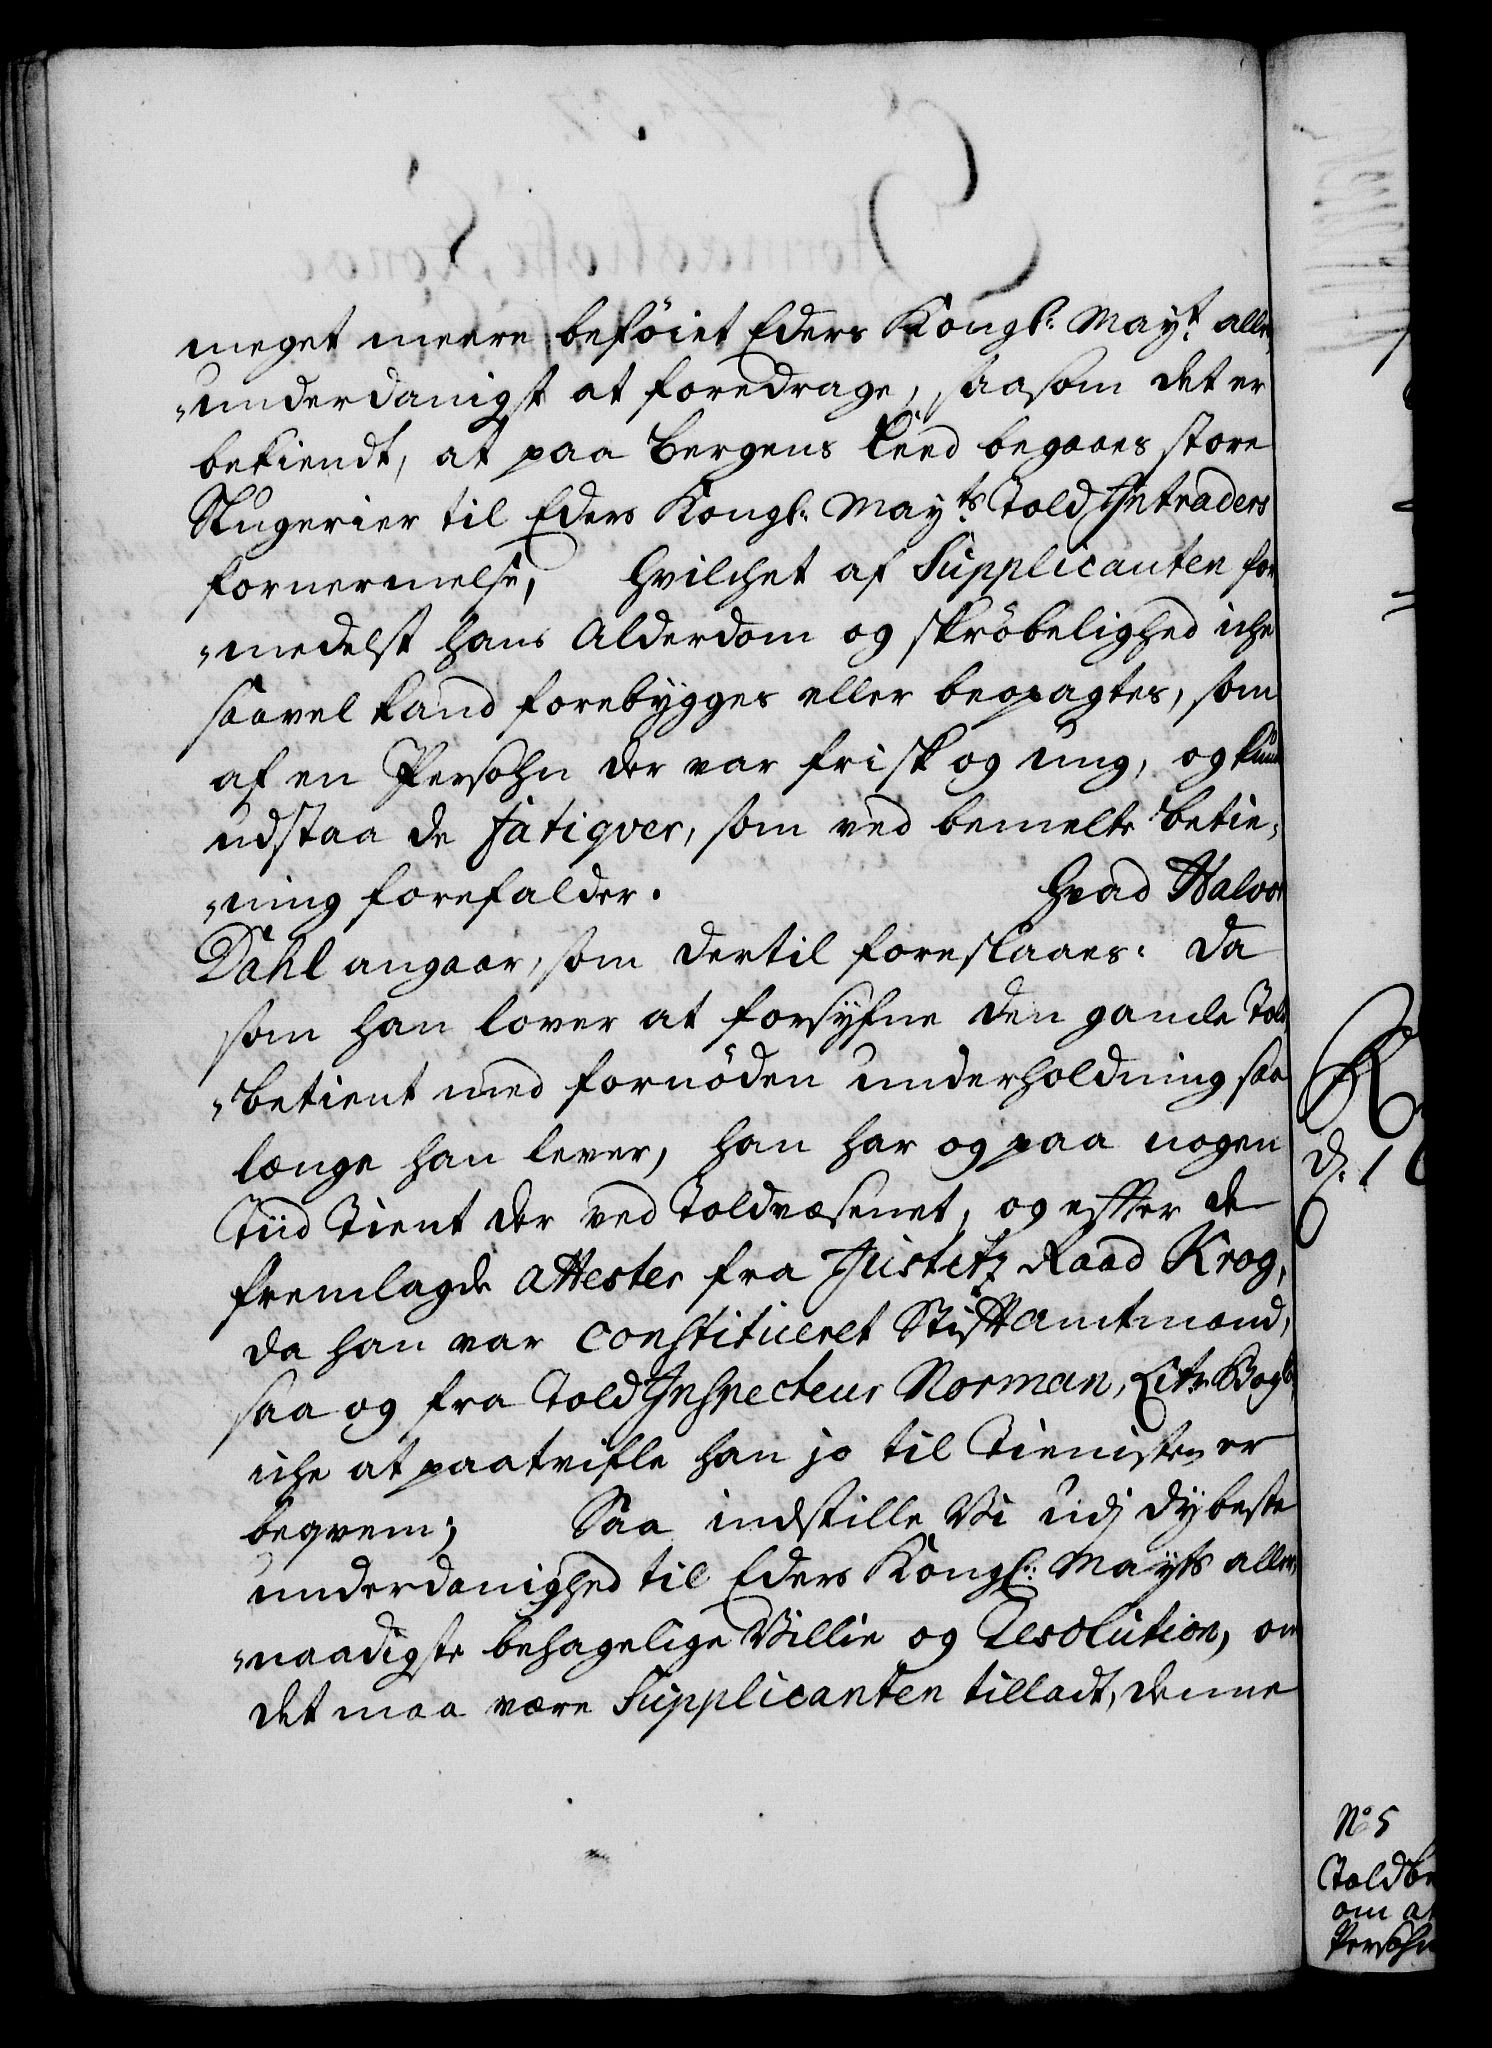 meget meere beföiet Eders Kongl: Mayt. aller,
„underdanigst at foredrage, saasom det er
bekiendt, at paa Bergens Leed begaaes store
Slugerier til Eders Kongl: Mayts Told Intraders
fornermelse, hvilchet af Supplicanten for
„medelst hans Alderdom og skröbelighed iche
saavel kand forebygges eller beopagtes, som
af en Persohn der var frisk og ung, og kunde
udstaa de fatiqver, som ved bemelte betie,
„ning forefalder. Hvad Halvor
Dahl angaar, som dertil foreslaaes: da
som han lover at forsÿfne den gamle Told
„betient med fornöden underholdning saa
længe han lever, han har og paa nogen
Tiid tient der ved Toldvæsenet, og efter de
fremlagde attester fra Justitz Raad Krog,
da han var constitueret Stiftamtmand,
saa og fra Told Inspecteur Norman,
iche at paatvifle han jo til Tienisten er
beqvem; Saa indstille Vi udj dybeste
underdanighed til Eders Kongl: Mayts aller,
„naadigste behagelige Villie og Resolution, om
det maa være Supplicanten tilladt, denne
No 5